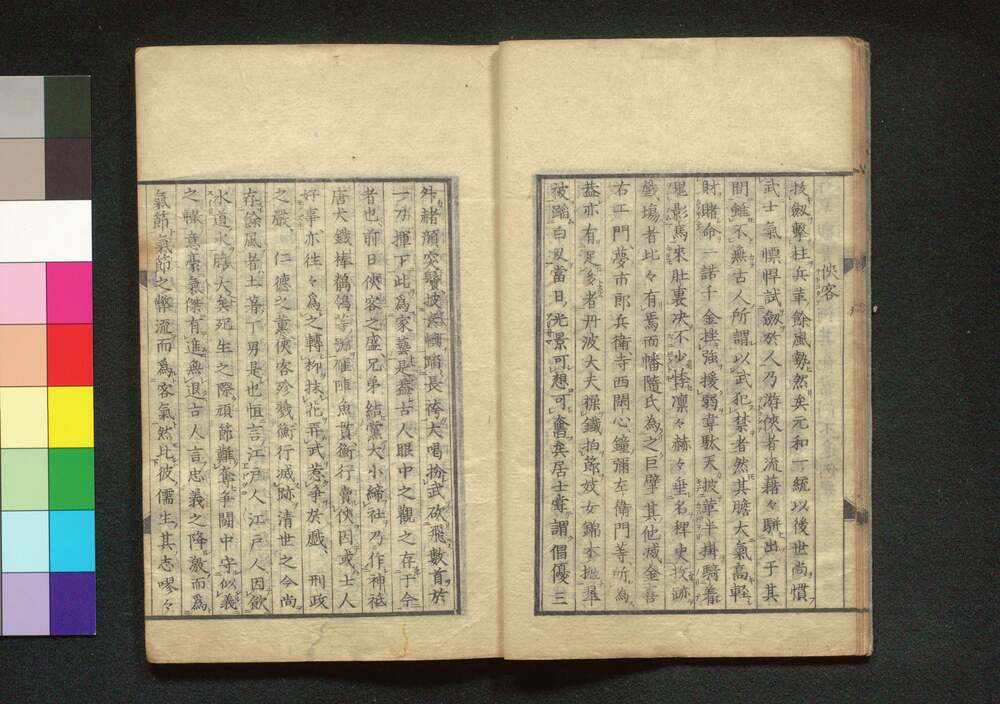 俠客
拔劔擊柱兵革餘風勢然矣元和一統以後世尚慣
武士氣慓悍試劔於人乃游俠者流藉々駢出于其
間雖不無古人所謂以武犯禁者然其膽大氣高輕
財賭命一諾千金挫強援弱韋馱天披革半掛驕着
鬼影馬來肚裏決不少悸凛々赫々垂名稗史攷跡
戲塲者比々有焉而幡隨氏為之巨擘其他堿金喜
右工門夢市郎兵衛寺西閑心鐘彌左衛門等所為
益亦有足多者丹波大夫操鐵拍節妓女錦木
彼蹈白刄當日光景可想可會矣居士嘗謂倡優三
舛緒顏突鬢披長袴大喝扮武砍飛數首於
一刀揮下此為家藝是蓋古人眼中之觀之存于今
者也前日俠客之盛兄弟結黨大小締社乃作神祇
唐犬鐵棒鶺鴒等號雁陣魚貫衝行賣俠因或士人
好事亦往々為之轉柳扶花弄武惹爭於戲刑政
之嚴仁德之薰俠客殄戮衝行滅跡清世之今尚
存餘風者土著丁男是也恒言江戶人江戶人因飲
水道水膽大矣死生之際頑節難奪爭鬪中守似義
之操意豪氣傑有進無退古人言忠義之降激而為
氣節氣節之弊流而為客氣然比彼儒生其志嘐々